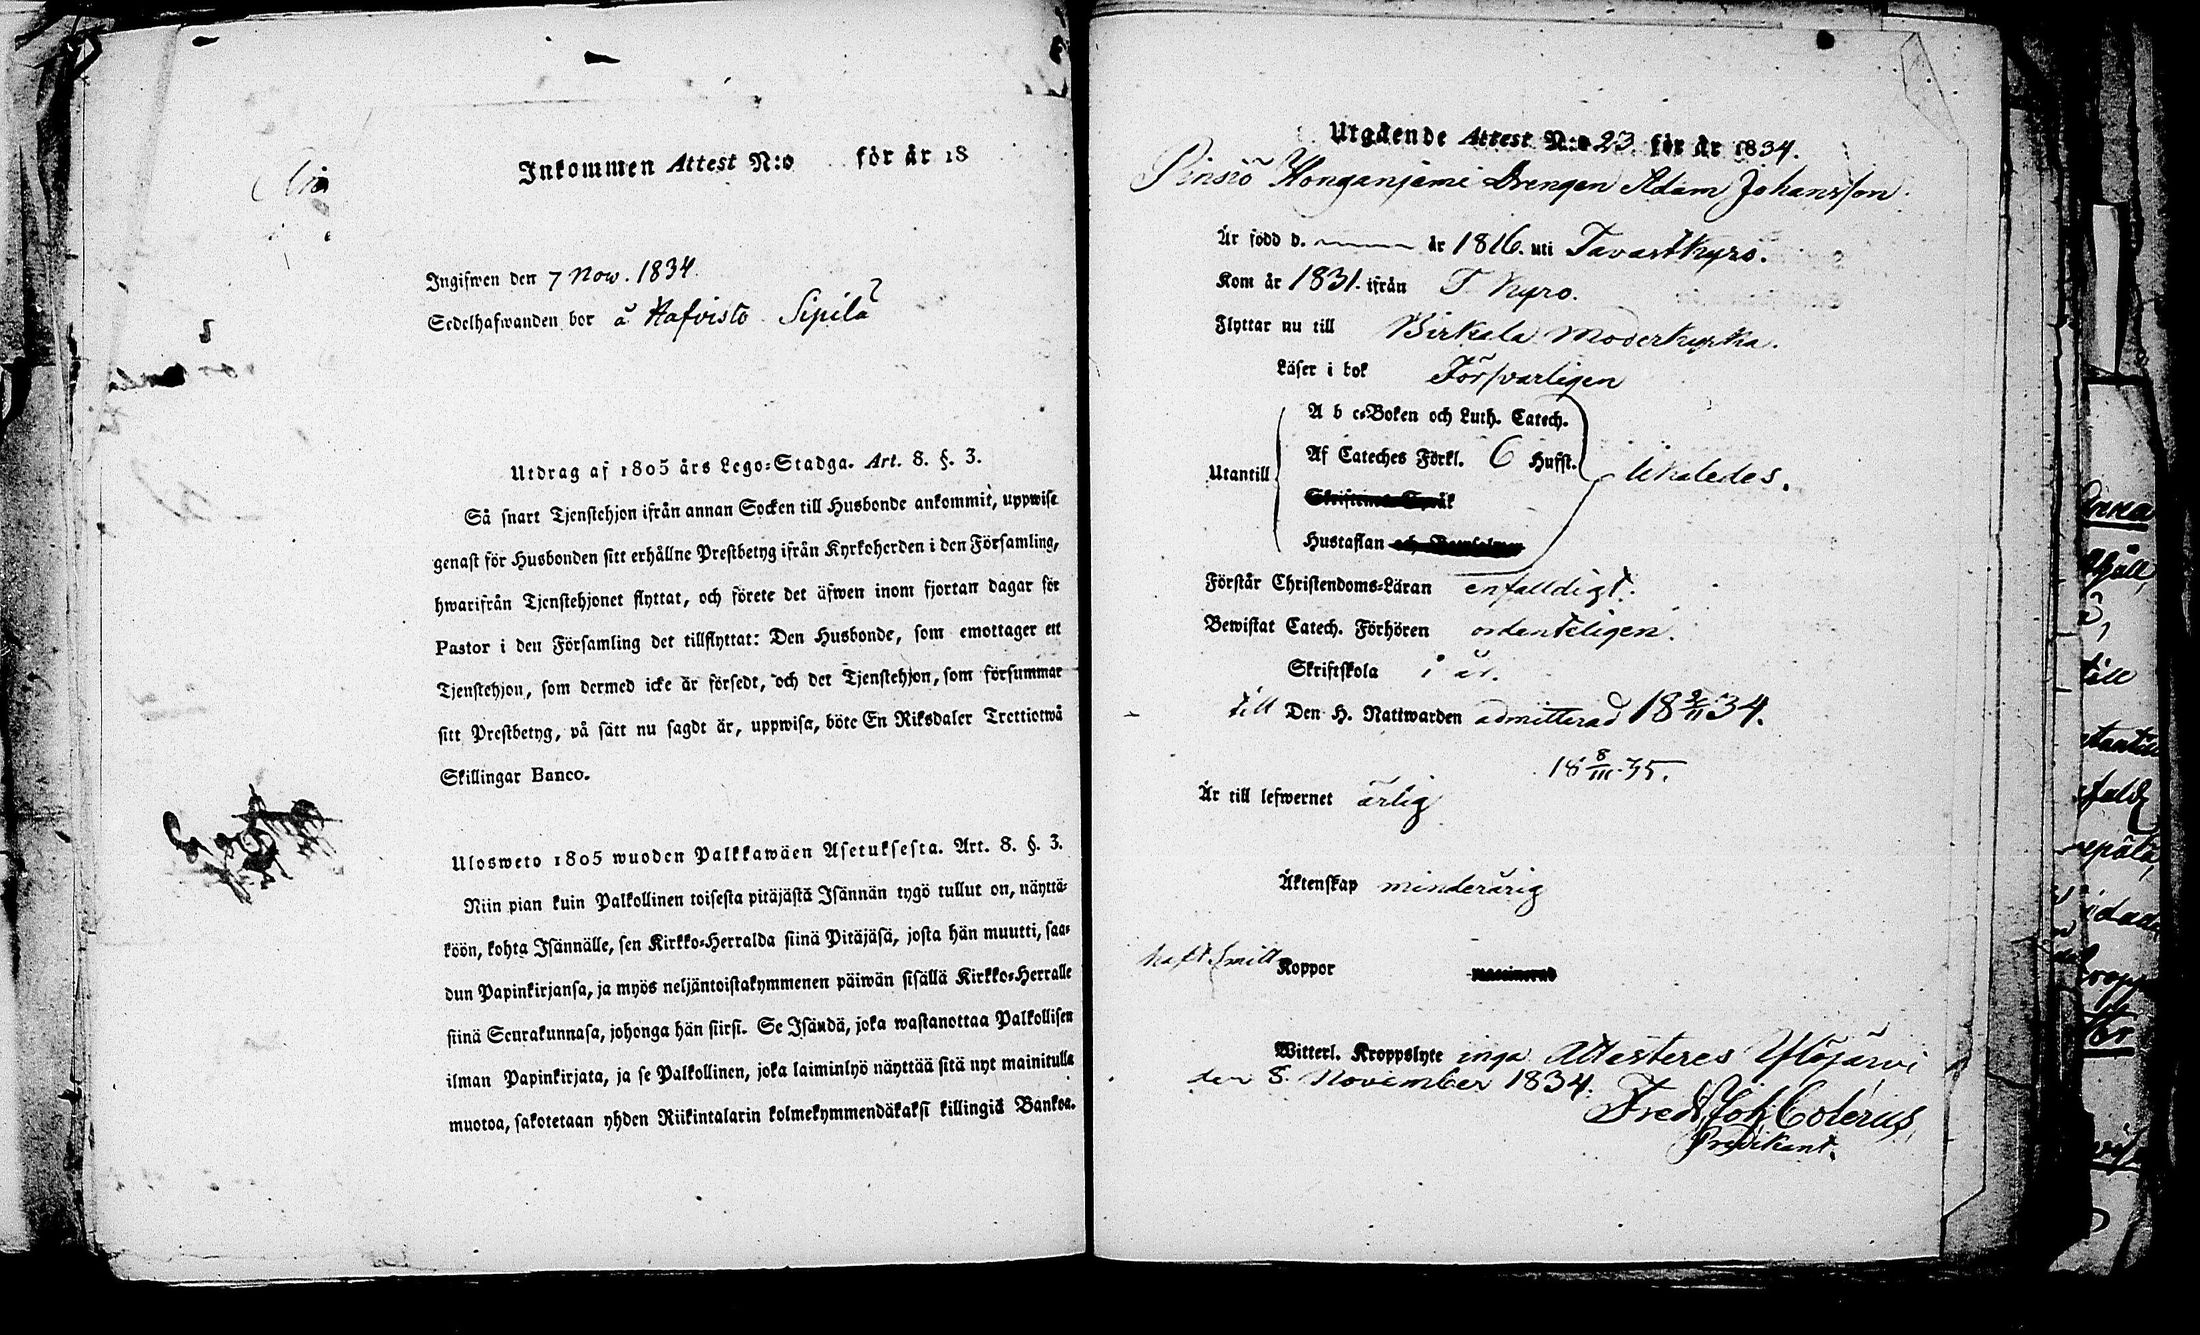 Inkommen Attest N:o för år 18
Ingifwen den 7 Nov. 1834
Sedelhafwanden bor å Hafvisto Sipilä
Utdrag af 1805 års Lego-Stadga. Art. 8. §. 3.
Så snart Tjenstehjon ifrån annan Socken till Husbonde ankommit, uppwise
genast för Husbonden sitt erhållne Prestbetyg ifrån Kyrkoherden i den Församling,
hwarifrån Tjenstehjonet flyttat, och förete det äfwen inom fjortan dagar för
Pastor i den Församling det tillflyttat: Den Husbonde, som emottager ett
Tjenstehjon, som dermed icke är försedt, och det Tjenstehjon, som försummar
sitt Prestbetyg, på sätt nu sagdt är, uppwisa, böte En Riksdaler Trettiotwå
Skillingar Banco.
Ulosweto 1805 wuoden Palkkawäen Asetuksesta. Art. 8. §. 3.
Niin pian kuin Palkollinen toisesta pitäjästä Isännän tygö tullut on, näyttä-
köön, kohta Isännälle, sen Kirkko-Herralda siinä Pitäjäsä, josta hän muutti, saa-
dun Papinkirjansa, ja myös neljäntoistakymmenen päiwän sisällä Kirkko-Herralle
siinä Seurakunnasa, johonga hän siirsi. Se Isändä, joka wastanottaa Palkollisen
ilman Papinkirjata, ja se Palkollinen, joka laiminlyö näyttää sitä nyt mainitulla
muotoa, sakotetaan yhden Riikintalarin kolmekymmendäkaksi killingiä Bankoa.
Utgående Attest N:o 23 för år 1834.
Pinsiö Honganjemi Drengen Adam Johansson.
Är född d. år 1816. uti Tavastkyro.
Kom år 1831. ifrån T. Kyro.
Flyttar nu till Birkala Moderkyrka.
Läser i bok Försvarligen
A b c-Boken och Luth. Catech.
Utantill Af Cateches Förkl. 6 Hufst. likaledes.
Skriftenes Språk
Hustaflan och
Förstår Christendoms-Läran enfalldigt.
Bewistat Catech. Förhören ordenteligen.
Skriftskola i år.
till Den H. Nattwarden admitterad 18 2/11 34.
18 8/III 35.
Är till lefwernet ärlig
Äktenskap minderårig
haft Koppor
Witterl. Kroppslyte inga Attesteres Ylöjärvi
den 8. November 1834.
Fred. Joh. Colerus,
Predikant.